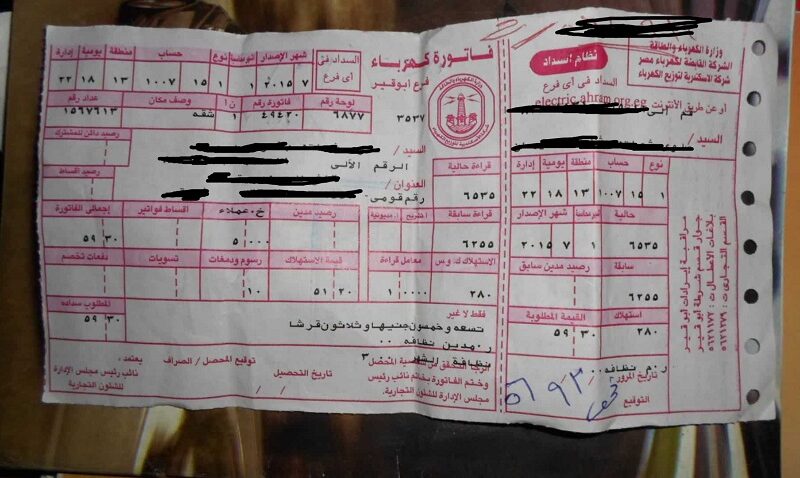 وزارة الكهرباء والطاقة
الشركة القابضة لكهرباء مصر
شركة الاسكندرية لتوزيع الكهرباء
نظام السداد
السداد فى أى فرع
أو عن طريق الأنترنت
electric.ahram.org.eg
السيد /
نوع حساب منطقة يومية إدارة
١ ١٥ ١٠٠٧ ١٣ ١٨ ٢٢
حالية شهر الإصدار
٦٥٣٥ ١ ٧ ٢٠١٥
سابقة رصيد مدين سابق
٦٢٥٥
استهلاك القيمة المطلوبة
٢٨٠ ٣٠ ٥٩
تاريخ المرور
التوقيع
القسم التجارى ت : ٥٦٢١٢٧٩
بلاغات الأعطال ت : ٥٦٢١١٧٢
جوار قسم شرطة ابو قير
مراقبة إيرادات ابو قير
فاتورة كهرباء
فرع ابوقير
٣٥٣٧
السداد فى
أى فرع
شهر الإصدار نوع حساب منطقة يومية إدارة
٧ ٢٠١٥ ١ ١ ١٥ ١٠٠٧ ١٣ ١٨ ٢٢
لوحة رقم فاتورة رقم وصف مكان عداد رقم
٦٨٧٧ ٤٩٤٢٠ ١ شقه ١٥٦٧٦١٣
السيد /
الرقم الألى
العنوان /
رقم قومى
رصيد دائن للمشترك
رصيد اقساط
قراءة حالية
٦٥٣٥
قراءة سابقة رصيد مدين خ.عملاء اقساط فواتير إجمالى الفاتورة
٦٢٥٥ ٥ ٠٠٠ ٣٠ ٥٩
الاستهلاك ك.و.س معامل قراءة قيمة الاستهلاك رسوم ودمغات تسويات دفعات تخصم
٢٨٠ ١ ٠٠٠٠ ٢٠ ٥١ ١٠
المطلوب سداده
٣٠ ٥٩
فقط لا غير
تسعه وخمسون جنيها و ثلاثون قرشا
وختم الفاتورة بخاتم نائب رئيس
مجلس الإدارة للشئون التجارية.
تاريخ التحصيل
/ /
توقيع المحصل / الصراف
يعتمد ،
نائب رئيس مجلس الإدارة
للشئون التجارية